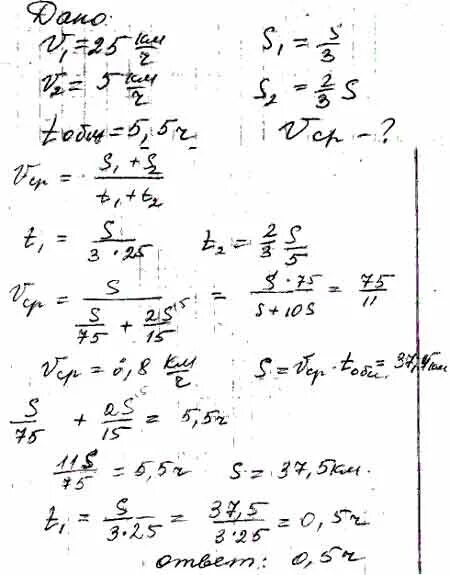 Дано:
V₁ = 25 км/ч
S₁ = S/3
V₂ = 5 км/ч
S₂ = 2/3 S
tобщ = 5,5 ч
Vср - ?
Vср = (S₁ + S₂)/(t₁ + t₂)
t₁ = S/(3·25)
t₂ = 2/3 S/5
Vср = S/(S/75 + 2S/15) = (S·75)/(S+10S) = 75/11
Vср = 6,8 км/ч
S = Vср · tобщ = 37,4 км
S/75 + 2S/15 = 5,5 ч
11S/75 = 5,5 ч
S = 37,5 км.
t₁ = S/(3·25) = 37,5/(3·25) = 0,5 ч
ответ: 0,5 ч